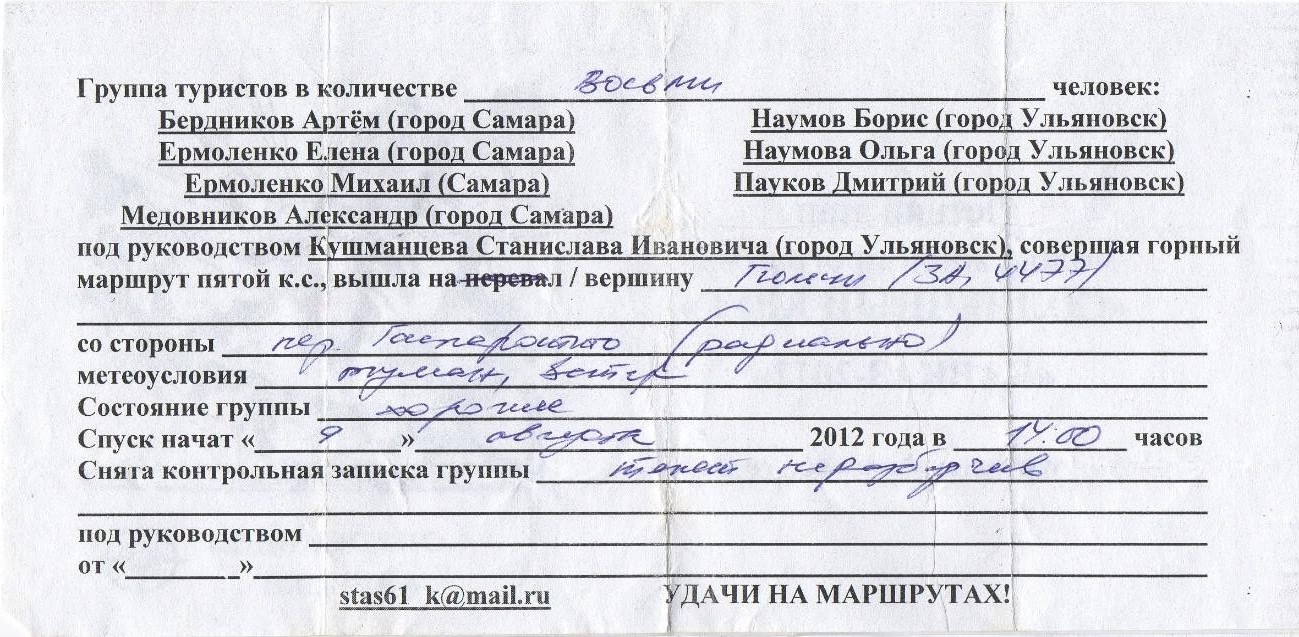 Группа туристов в количестве восьми человек:
Бердников Артём (город Самара) Наумов Борис (город Ульяновск)
Ермоленко Елена (город Самара) Наумова Ольга (город Ульяновск)
Ермоленко Михаил (Самара) Пауков Дмитрий (город Ульяновск)
Медовников Александр (город Самара)
под руководством Кушманцева Станислава Ивановича (город Ульяновск), совершая горный
маршрут пятой к.с., вышла на перевал / вершину Тютюн (3А, 4477)
со стороны пер. Гаспаротто (радиально)
метеоусловия туман, ветер
Состояние группы хорошее
Спуск начат « 9 » августа 2012 года в 14:00 часов
Снята контрольная записка группы текст неразборчив
под руководством
от « »
stas61_k@mail.ru УДАЧИ НА МАРШРУТАХ!